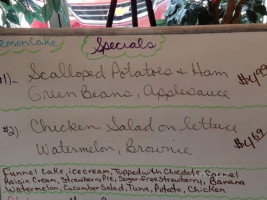 Lemon Cake
Specials
#1) - Scalloped Potatoes & Ham
Green Beans, Applesauce
$4.99
#2) Chicken Salad on lettuce
Watermelon, Brownie
$4.69
Funnel Cake, ice cream, Topped with Chocolate, Carmel
Raisin Cream, Strawberry Pie, Sugar free Strawberry, Banana
Watermelon, Cucumber Salad, Tuna, Potato, Chicken